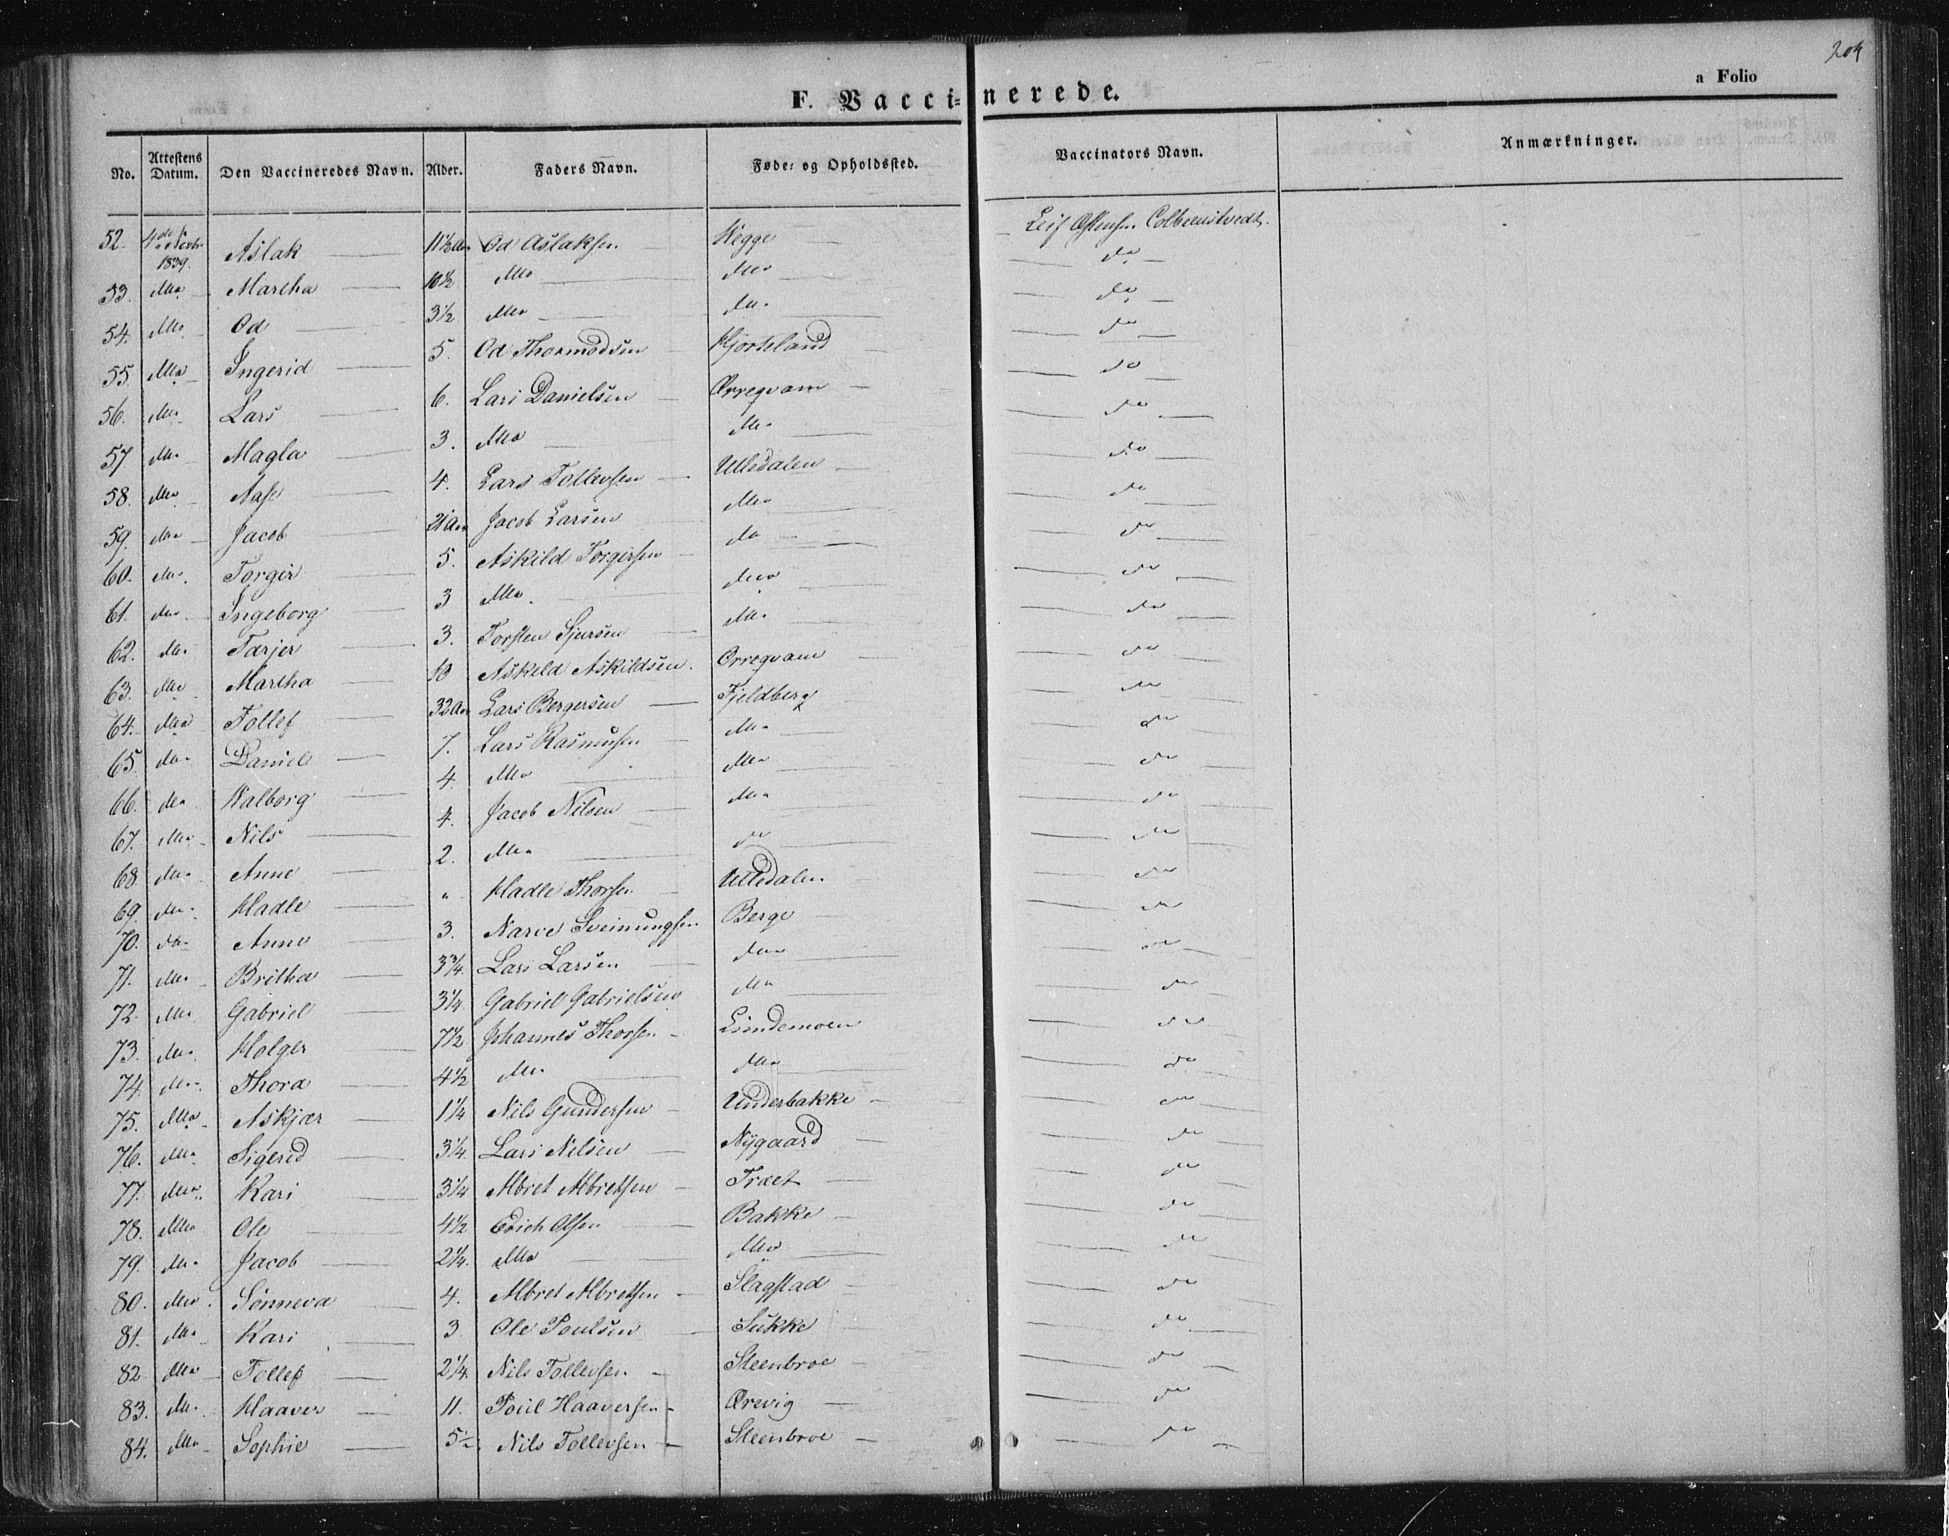 204
a Folio
F. Vaccinerede.
No. Attestens Datum. Den Vaccineredes Navn. Alder. Faders Navn. Føde- og Opholdssted. Vaccinators Navn. Anmærkninger.
52. 4de Novbr 1839. Aslak 11½ Aar Od Aslaksen Hegge Leif Colbeenstvedt.
53. do Martha 10½ do do do
54. do Od 3½ do do do
55. do Ingerid 5. Od Thormodsen Hjorteland do
56. do Lars 6. Lars Danielsen Ørregvam do
57 do Magla 3. do do do
58. do Aase 4. Lars Tollevsen Ulledalen do
59. do Jacob 21 Aar Jacob Larsen do do
60. do Torgir 5. Askild Torgersen do do
61. do Ingeborg 3 do do do
62. do Tarjer 3. Torsten Sjursen do do
63. do Martha 10 Askild Askildsen. Ørregvam do
64. do Tollef 32 Aar Lars Bergersen Fjeldberg do
65. do Daniel 7. Lars Rasmusen do do
66. do Walborg 4. do do do
67. do Nils 4. Jacob Nilsen do do
68 do Anne 2. do do do
69. do Hadle " Hadle Thorsen Ulledalen do
70. do Anne 3. Narve Sveinungsen Berge do
71. do Britha 3¾. Lars Larsen do do
72 do Gabriel 3¼. Gabriel Gabrielsen do do
73. do Holger 7½ Johannes Thorsen Lindemoen do
74. do Thora 4½ do do do
75. do Askjær 1¼ Nils Gundersen Underbakke do
76. do Sigerid 3¼. Lars Nilsen Nygaard do
77. do Kari 3¼ Albret Albretsen Træet do
78. do Ole 4½ Erich Olsen Bakke do
79. do Jacob 2¼. do do do
80. do Sønneva 4. Albret Albretsen Slagstad do
81. do Kari 3 Ole Poulsen Sukke do
82 do Tollef 2¼. Nils Tollevsen Steenbroe do
83. do Haaver 11. Poul Haaversen Ørevig do
84. do Sophie 5½. Nils Tollevsen Steenbroe do